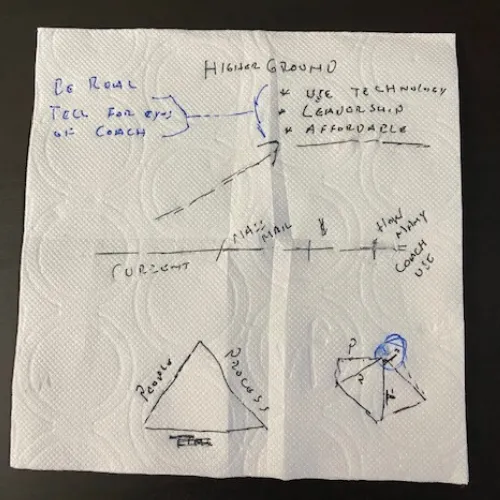 HIGHER GROUND
BE REAL
TELL FOR EYES
OF COACH
* USE TECHNOLOGY
* LEADERSHIP
* AFFORDABLE
CURRENT
MASS
MAIL
8
HOW
MANY
COACH
USE
PEOPLE
PROCESS
P
P